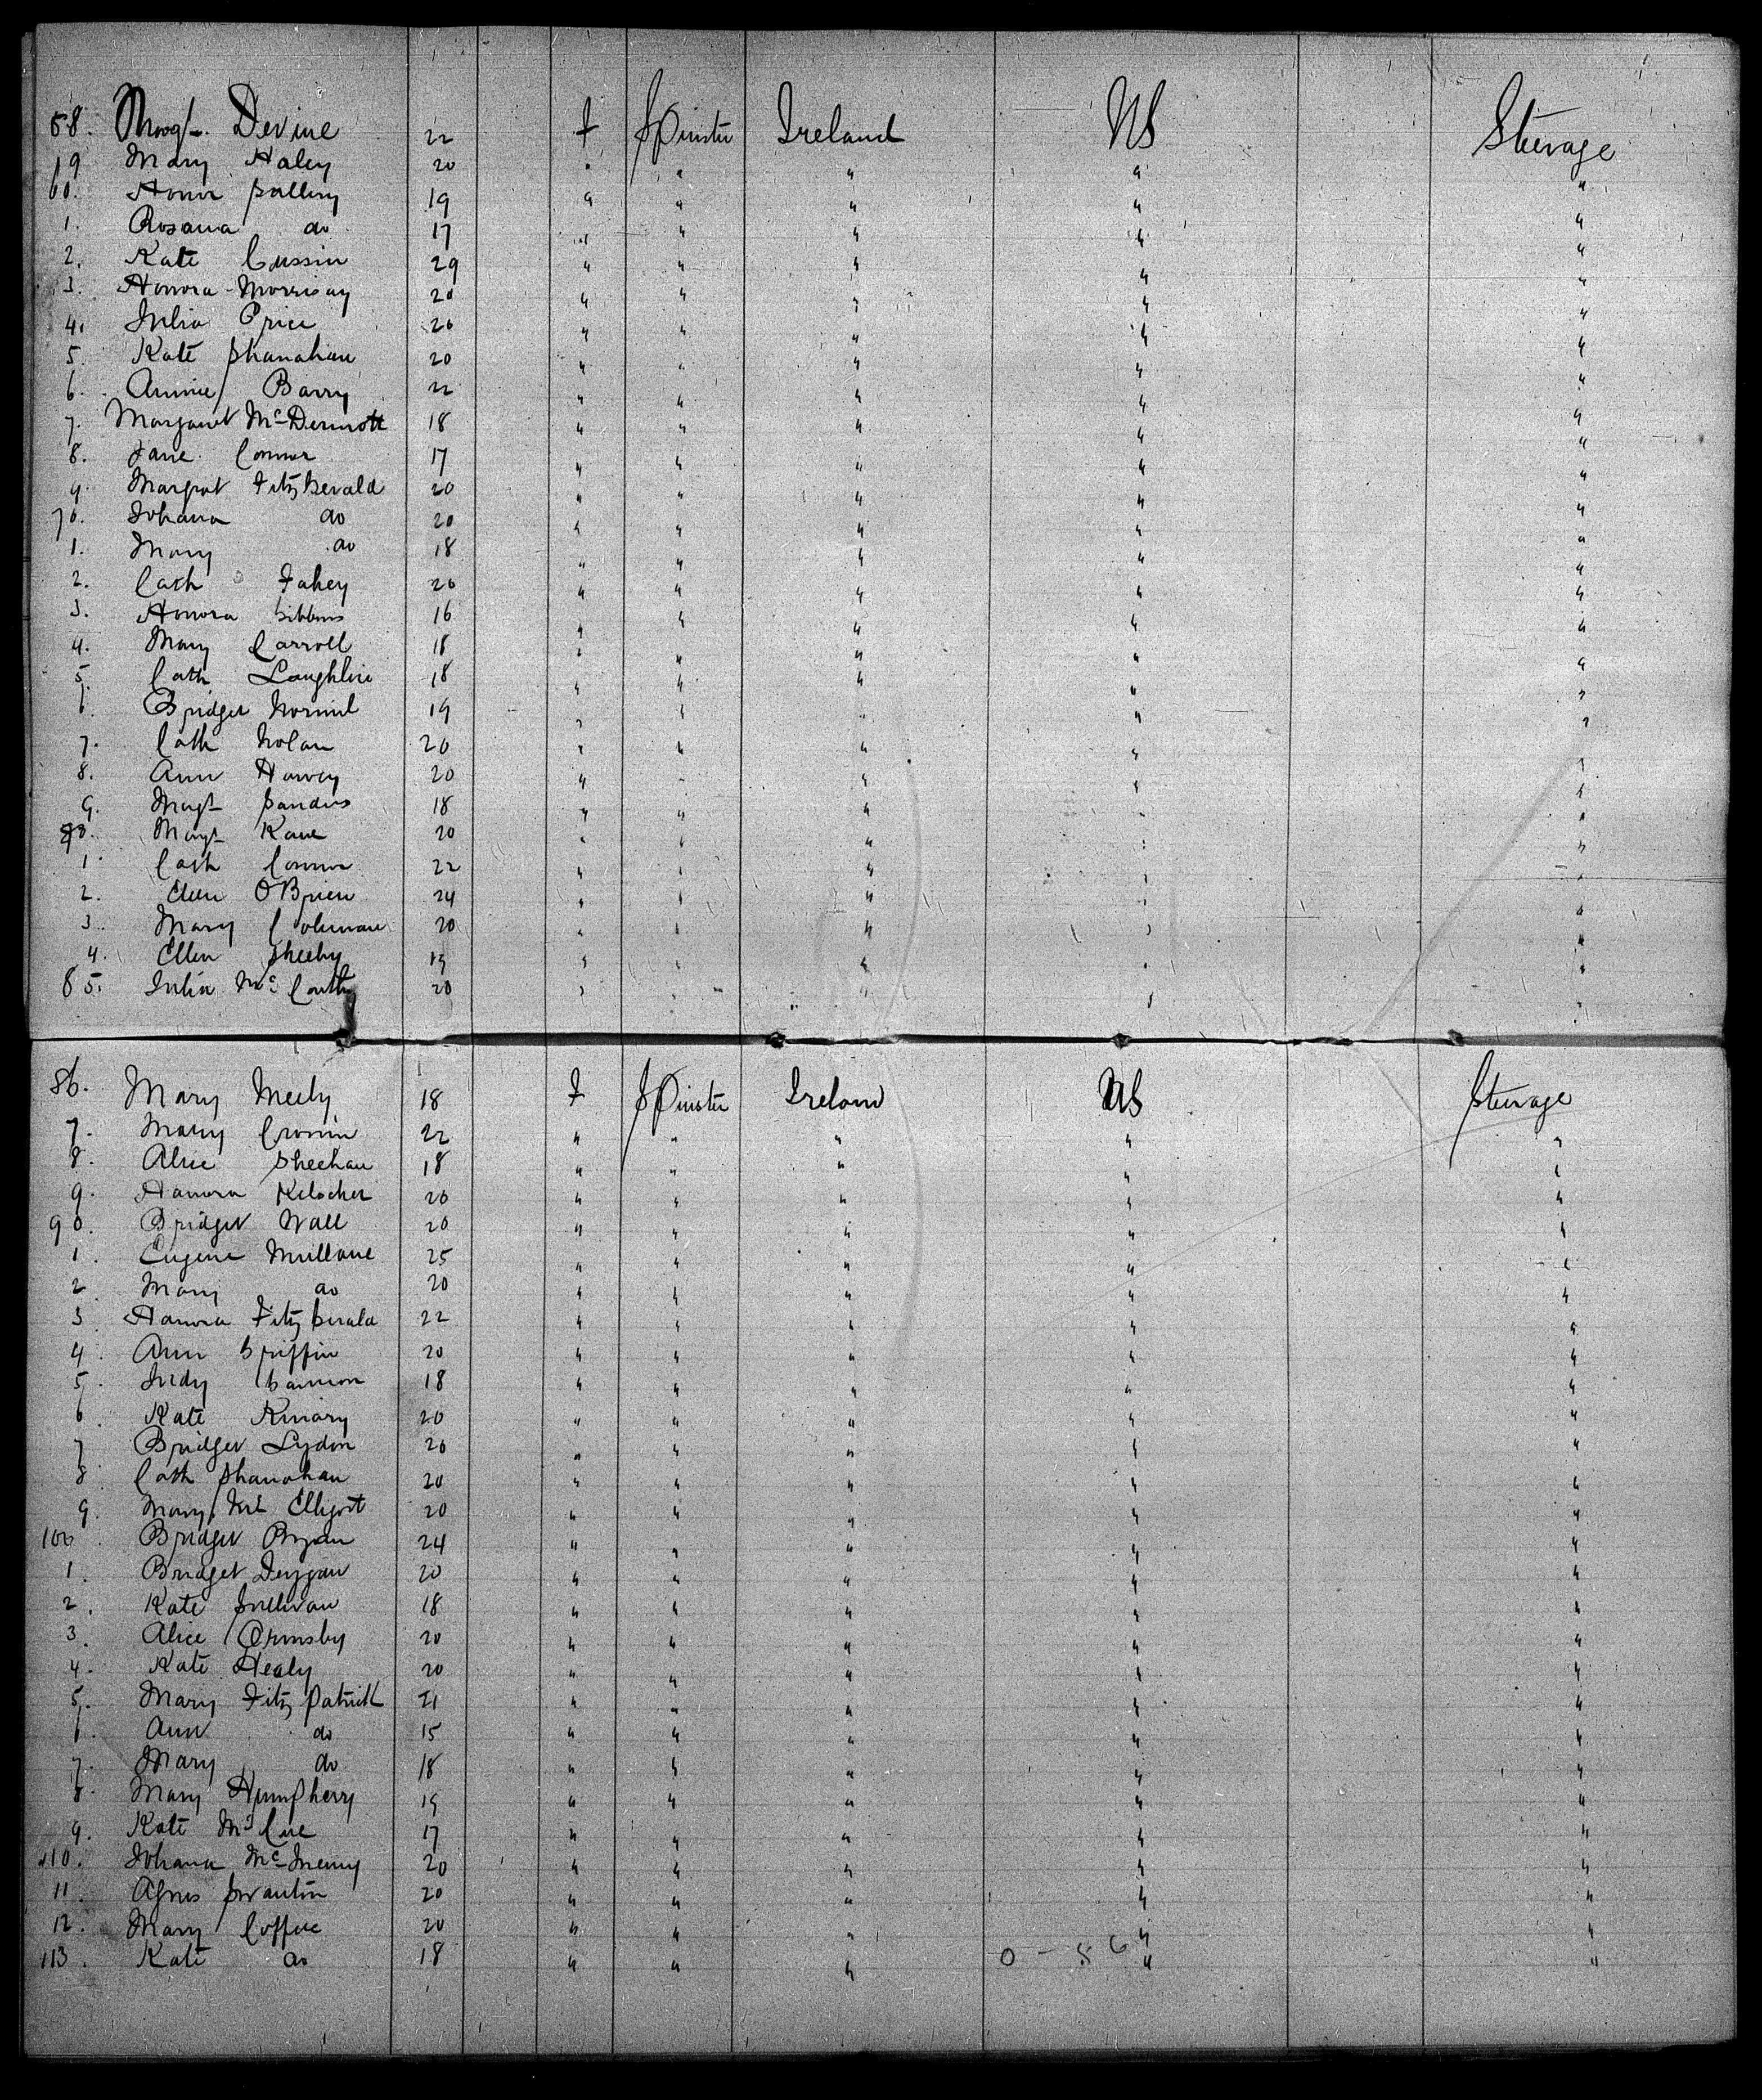 58. Margt. Devine 22 F Spinster Ireland US Steerage
59 Mary Haley 20 " " " " "
60. Honor 19 " " " " "
1. Rosanna do 17 " " " " "
2. Kate Cussin 29 " " " " "
3. Honora Morrisay 20 " " " " "
4. Julia Price 20 " " " " "
5. Kate Shanahan 20 " " " " "
6. Annie Barry 22 " " " " "
7. Margaret McDermott 18 " " " " "
8. Jane Connor 17 " " " " "
9. Margrat FitzGerald 20 " " " " "
70. Johana do 20 " " " " "
1. Mary do 18 " " " " "
2. Cath Fahey 20 " " " " "
3. Honora Gibbons 16 " " " " "
4. Mary Carroll 18 " " " " "
5. Cath Loughlin 18 " " " " "
6. Bridget Normil 19 " " " " "
7. Cath Nolan 20 " " " " "
8. Ann Harvey 20 " " " " "
9. Magt Sanders 18 " " " " "
80. Magt Kane 20 " " " " "
1. Cath Connor 22 " " " " "
2. Ellen OBrien 24 " " " " "
3. Mary Coleman 20 " " " " "
4. Ellen Sheehy 19 " " " " "
85. Julia McCarthy 20 " " " " "
86. Mary Neely 18 F Spinster Ireland US Steerage
7. Mary Cronin 22 " " " " "
8. Alice Sheehan 18 " " " " "
9. Hanora Kelocher 20 " " " " "
90. Bridget Wall 20 " " " " "
1. Eugene Mullane 25 " " " " "
2. Mary do 20 " " " " "
3. Hanora FitzGerald 22 " " " " "
4. Ann Griffin 20 " " " " "
5. Judy Gannon 18 " " " " "
6. Kate Kinary 20 " " " " "
7 Bridget Lydon 20 " " " " "
8 Cath Shanahan 20 " " " " "
9. Mary McEllgott 20 " " " " "
100 Bridget Bryan 24 " " " " "
1. Bridget 20 " " " " "
2. Kate Sullivan 18 " " " " "
3. Alice Ormsby 20 " " " " "
4. Kate Healy 20 " " " " "
5. Mary Fitzpatrick 21 " " " " "
6. Ann do 15 " " " " "
7. Mary do 18 " " " " "
8. Mary Humpherry 19 " " " " "
9. Kate McCue 17 " " " " "
110. Johana 20 " " " " "
11. Agnes Swanton 20 " " " " "
12. Mary Coffee 20 " " " " "
113. Kate do 18 " " " " "
0 - 56